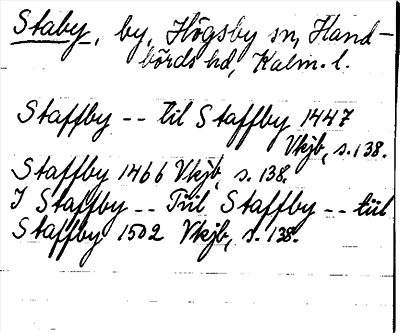 Staby, by, Högsby sn, Hand-
börds hd, Kalm. l.
Staffby -- til Staffby 1447
Vkjb, s. 138.
Staffby 1466 Vkjb, s. 138.
I Staffby -- Tiil Staffby -- tiil
Staffby 1502 Vkjb, s. 138.